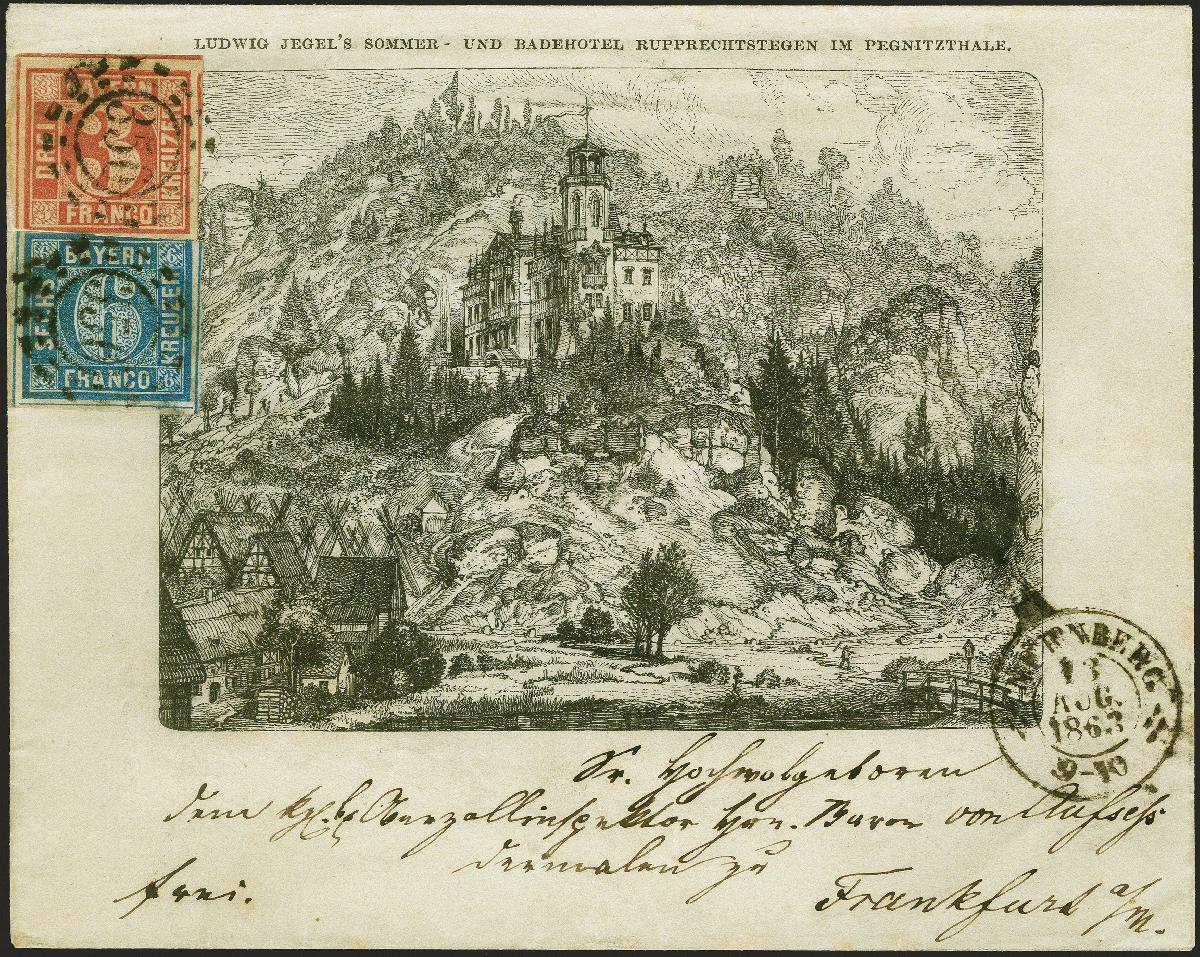 LUDWIG JEGEL'S SOMMER - UND BADEHOTEL RUPPRECHTSTEGEN IM PEGNITZTHALE.
DREI
KREUZER
FRANCO
BAYERN
SECHS
6
KREUZER
FRANCO
NÜRNBERG
13
AUG.
1863
9-10
Sr. Hochwolgeboren
dem kgl. b. Oberzollinspektor Hrn. Baron von Aufsess
dermalen zu
frei.
Frankfurt a/m.